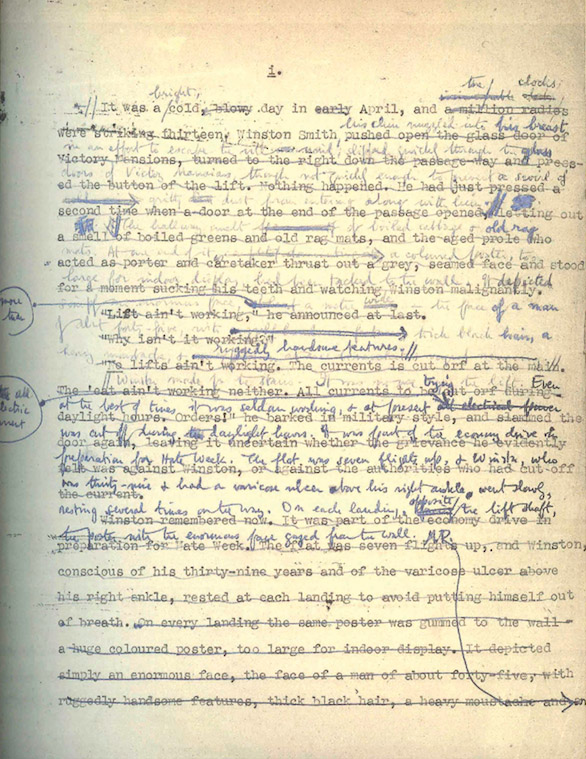 i.
the clocks
bright,
It was a cold, blowy day in early April, and a million radios
his chin nuzzled into his breast
were striking thirteen. Winston Smith pushed open the glass door of
in an effort to escape the vile wind, slipped quickly through the glass
Victory Mansions, turned to the right down the passage-way and press-
doors of Victory Mansions, though not quickly enough to prevent a swirl of
ed the button of the lift. Nothing happened. He had just pressed a
gritty dust from entering along with him.
second time when a door at the end of the passage opened, letting out
The hallway smelt of boiled cabbage & old rag
a smell of boiled greens and old rag mats, and the aged prole who
mats. At one end of it a coloured poster, too
acted as porter and caretaker thrust out a grey, seamed face and stood
large for indoor display, had been tacked to the wall. It depicted
for a moment sucking his teeth and watching Winston malignantly.
more than
simply an enormous face, a metre wide the face of a man
"Lift ain't working," he announced at last.
of about forty-five, with thick black hair, a
"Why isn't it working?"
heavy moustache & ruggedly handsome features.
"The lifts ain't working. The currents is cut off at the main.
Winston made for the stairs. It was no use trying the lift. Even
The 'eat ain't working neither. All currents to be cut off during
all electric current
at the best of times it was seldom working, & at present all electrical power
daylight hours. Orders!" he barked in military style, and slammed the
was cut off during daylight hours. It was part of the economy drive in
door again, leaving it uncertain whether the grievance he evidently
preparation for Hate Week. The flat was seven flights up, & Winston, who
felt was against Winston, or against the authorities who had cut off
was thirty-nine & had a varicose ulcer above his right ankle, went slowly,
the current.
resting several times on the way. On each landing, opposite the lift shaft,
Winston remembered now. It was part of the economy drive in
the poster with the enormous face gazed from the wall.
preparation for Hate Week. The flat was seven flights up, and Winston,
conscious of his thirty-nine years and of the varicose ulcer above
his right ankle, rested at each landing to avoid putting himself out
of breath. On every landing the same poster was gummed to the wall -
a huge coloured poster, too large for indoor display. It depicted
simply an enormous face, the face of a man of about forty-five, with
ruggedly handsome features, thick black hair, a heavy moustache and an